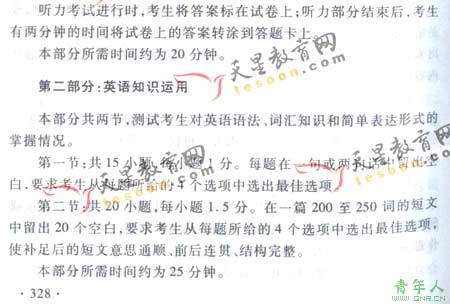 听力考试进行时,考生将答案标在试卷上;听力部分结束后,考生
有两分钟的时间将试卷上的答案转涂到答题卡上。
本部分所需时间约为 20 分钟。
天星教育网
tesoon.com
第二部分:英语知识运用
本部分共两节,测试考生对英语语法、词汇知识和简单表达形式的
掌握情况。
天星教育网
tesoon.com
第一节:共 15 小题,每小题 1 分。每题在一句或两句话中留出空
白,要求考生从每题所给的 4 个选项中选出最佳选项。
第二节:共 20 小题,每小题 1.5 分。在一篇 200 至 250 词的短文
中留出 20 个空白,要求考生从每题所给的 4 个选项中选出最佳选项,
使补足后的短文意思通顺、前后连贯、结构完整。
本部分所需时间约为 25 分钟。
· 328 ·
青年人
WWW.QNR.CN